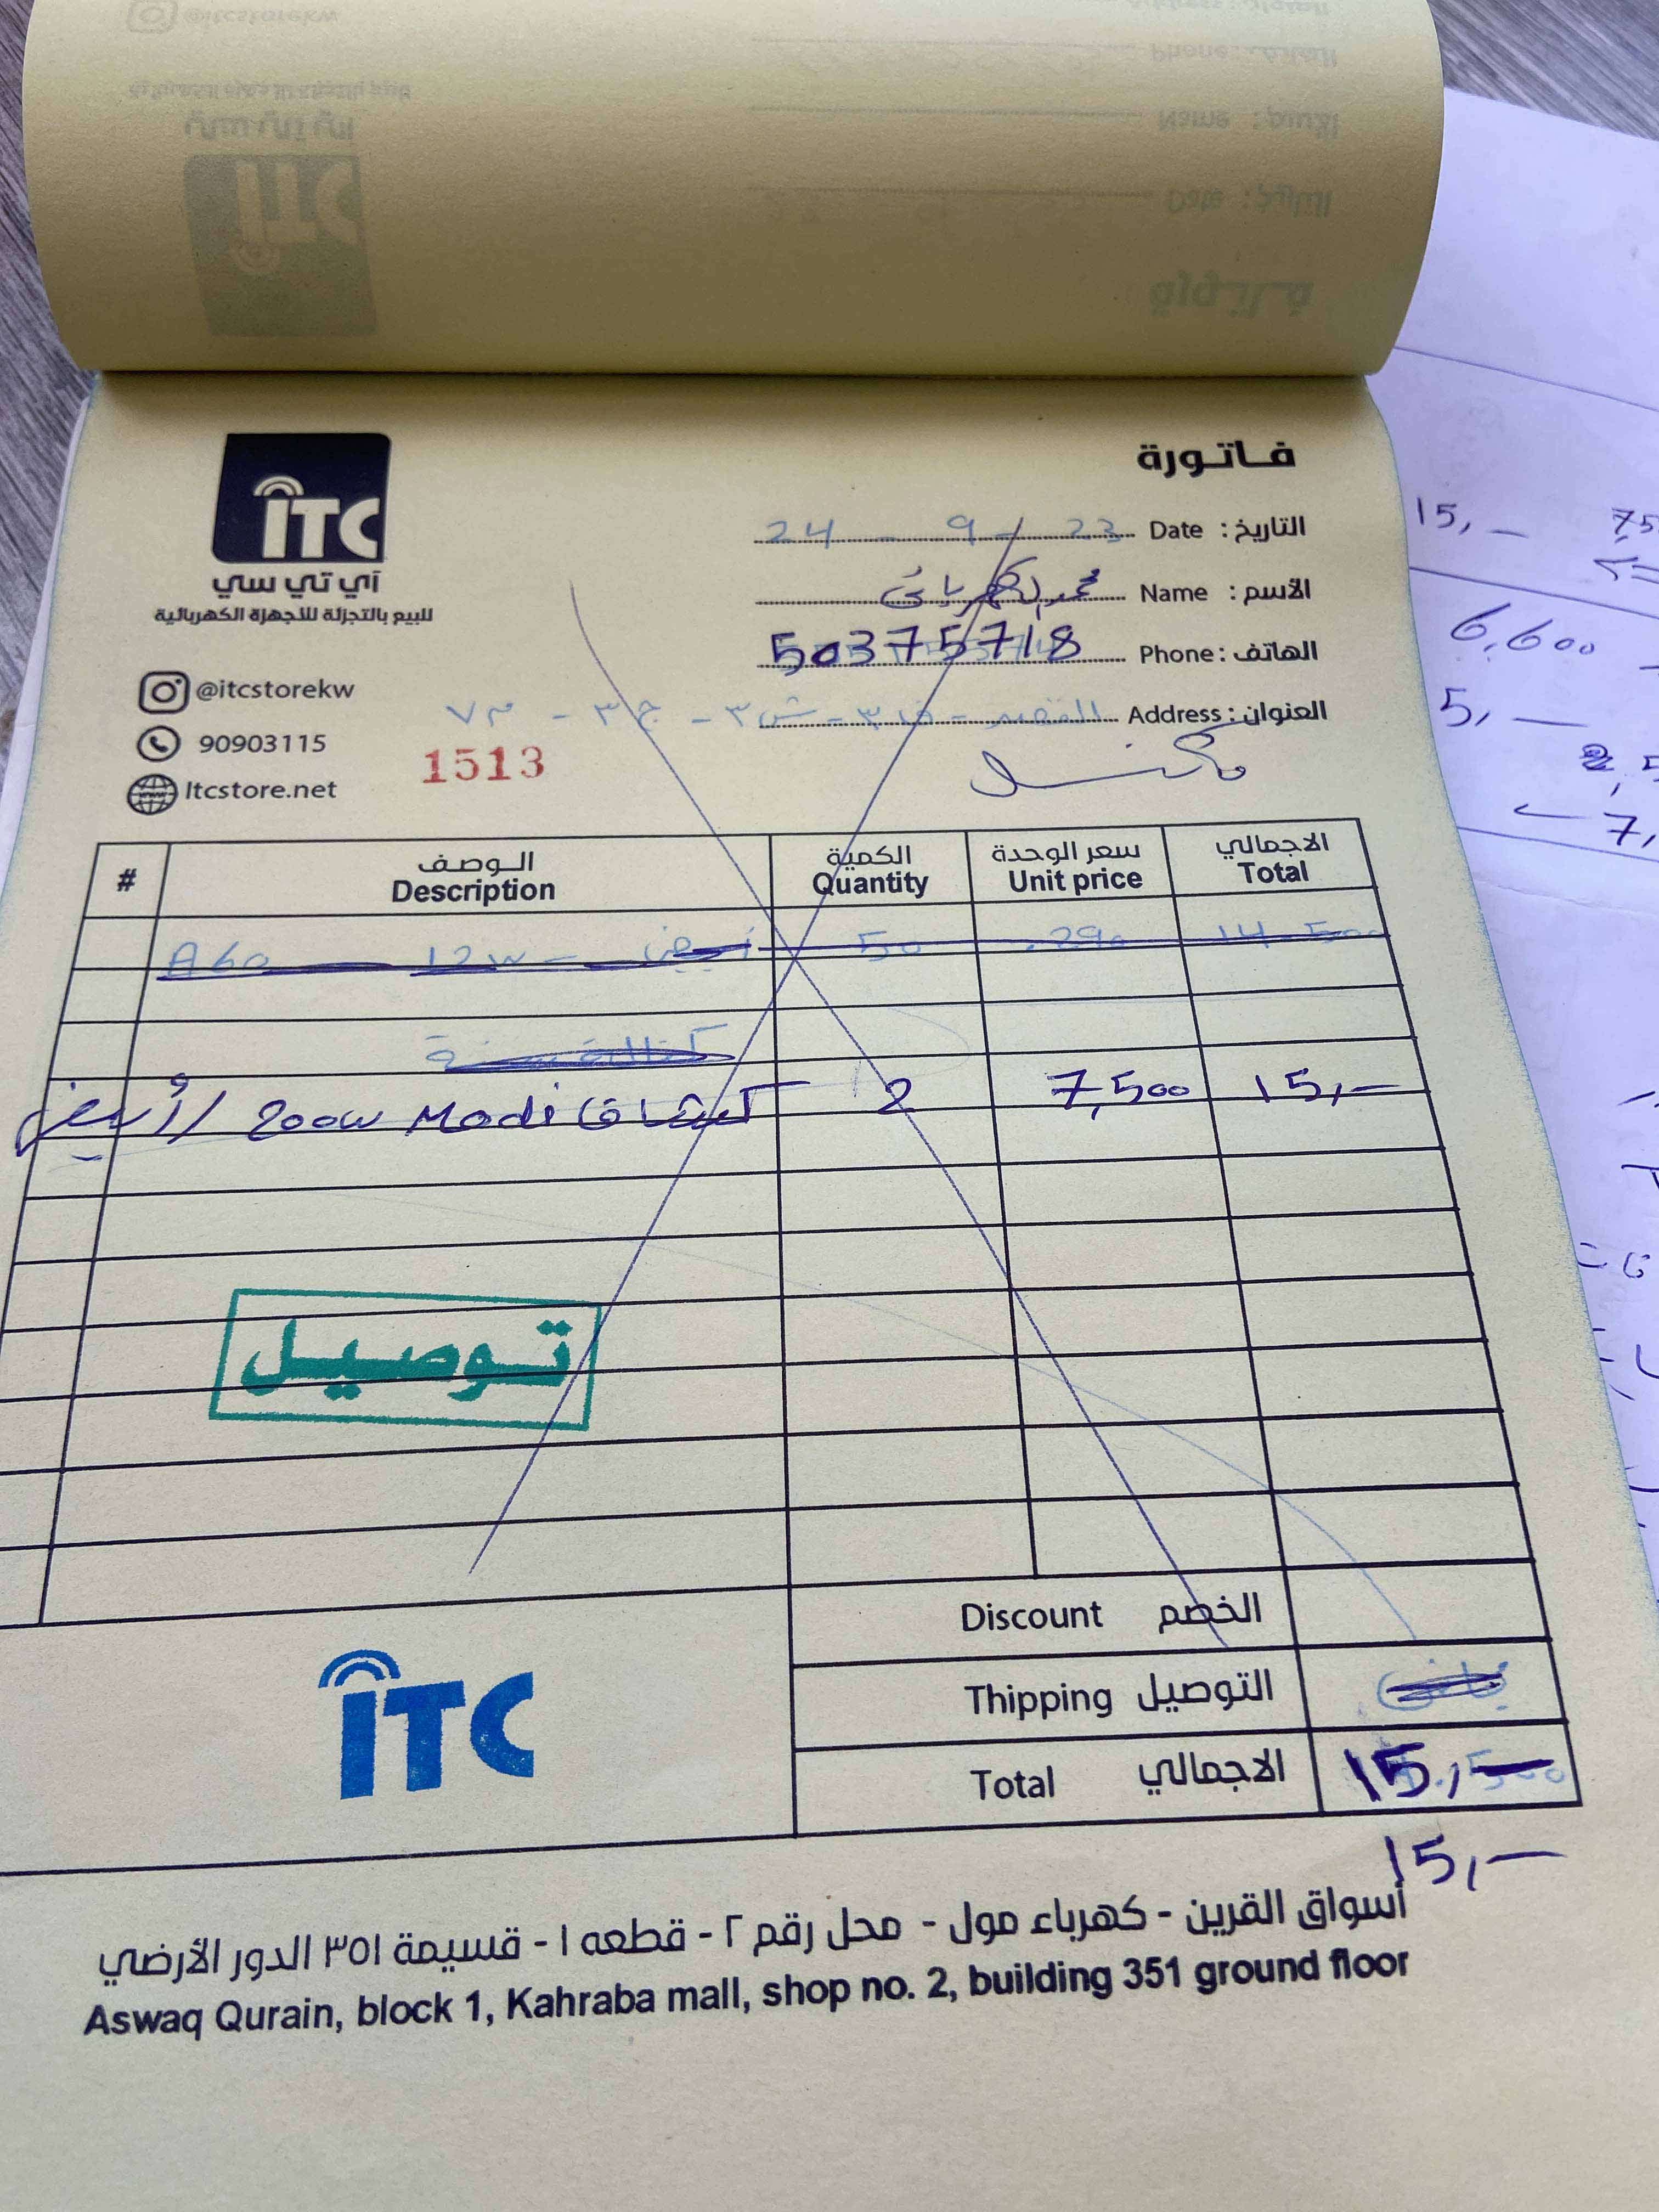 فاتورة
ITC
آي تي سي
للبيع بالتجزئة للأجهزة الكهربائية
@itcstorekw
90903115
Itcstore.net
1513
التاريخ : Date 24 - 9 - 23
الأسم : Name محمد الكهربائي
الهاتف : Phone 50375718
العنوان : Address - ق ٣ - ش ٣ - ج ٣ - م ٧
# الوصف Description الكمية Quantity سعر الوحدة Unit price الاجمالي Total
A60 12w أبيض 50 .290 14.500
كشافات 200w Modi / أبيض 2 7,500 15,—
توصيل
Discount الخصم
Thipping التوصيل
Total الاجمالي 15,—
15,—
ITC
أسواق القرين - كهرباء مول - محل رقم ٢ - قطعه ١ - قسيمة ٣٥١ الدور الأرضي
Aswaq Qurain, block 1, Kahraba mall, shop no. 2, building 351 ground floor
15,—
6,600
5,—